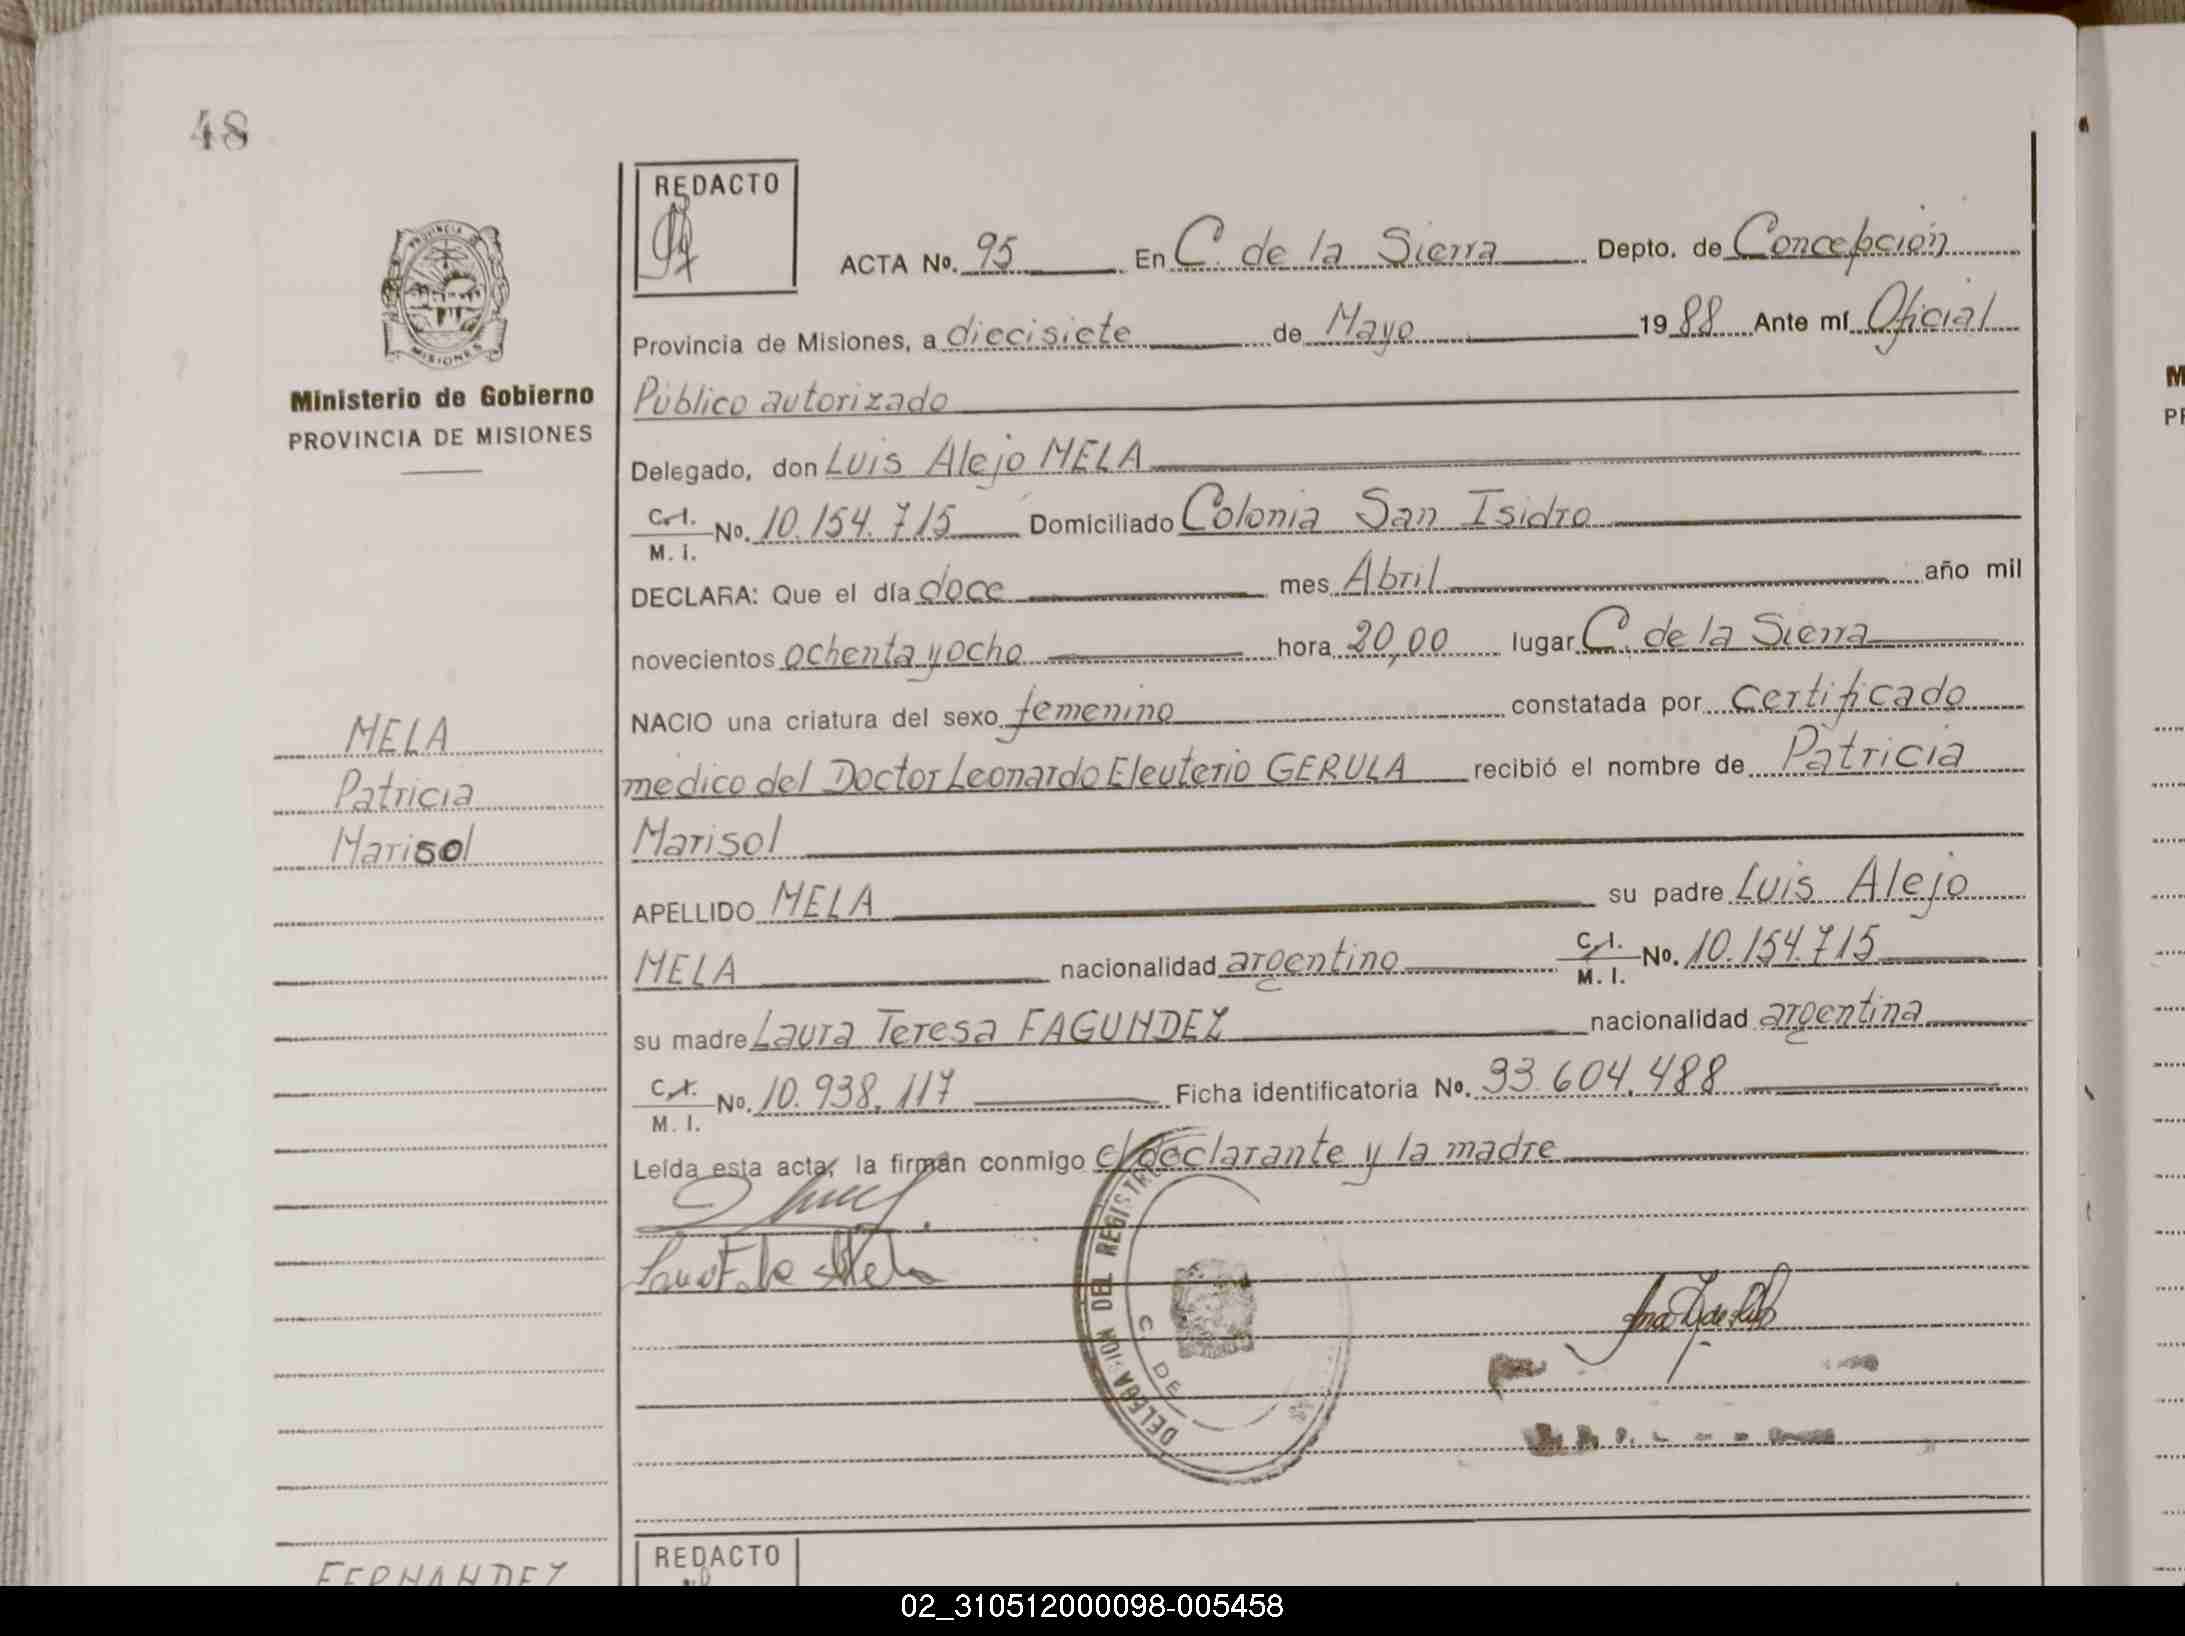 48
REDACTO
ACTA No. 95 En C. de la Sierra Depto. de Concepción
Provincia de Misiones, a diecisiete de Mayo 1988 Ante mí Oficial
Público autorizado
Delegado, don Luis Alejo MELA
C.I. M.I. No. 10.154.715 Domiciliado Colonia San Isidro
DECLARA: Que el día doce mes Abril año mil
novecientos ochenta y ocho hora 20,00 lugar C. de la Sierra
NACIO una criatura del sexo femenino constatada por certificado
medico del Doctor Leonardo Eleuterio GERULA recibió el nombre de Patricia
Marisol
APELLIDO MELA su padre Luis Alejo
MELA nacionalidad argentino C.I. M.I. No. 10.154.715
su madre Laura Teresa FAGUNDEZ nacionalidad argentina
C.I. M.I. No. 10.938.117 Ficha identificatoria No. 33.604.488
Leída esta acta, la firman conmigo el declarante y la madre
PROVINCIA DE
MISIONES
Ministerio de Gobierno
PROVINCIA DE MISIONES
MELA
Patricia
Marisol
DELEGACION DEL REGISTRO
C. DE
REDACTO
FERNANDEZ
M
PR
02_310512000098-005458